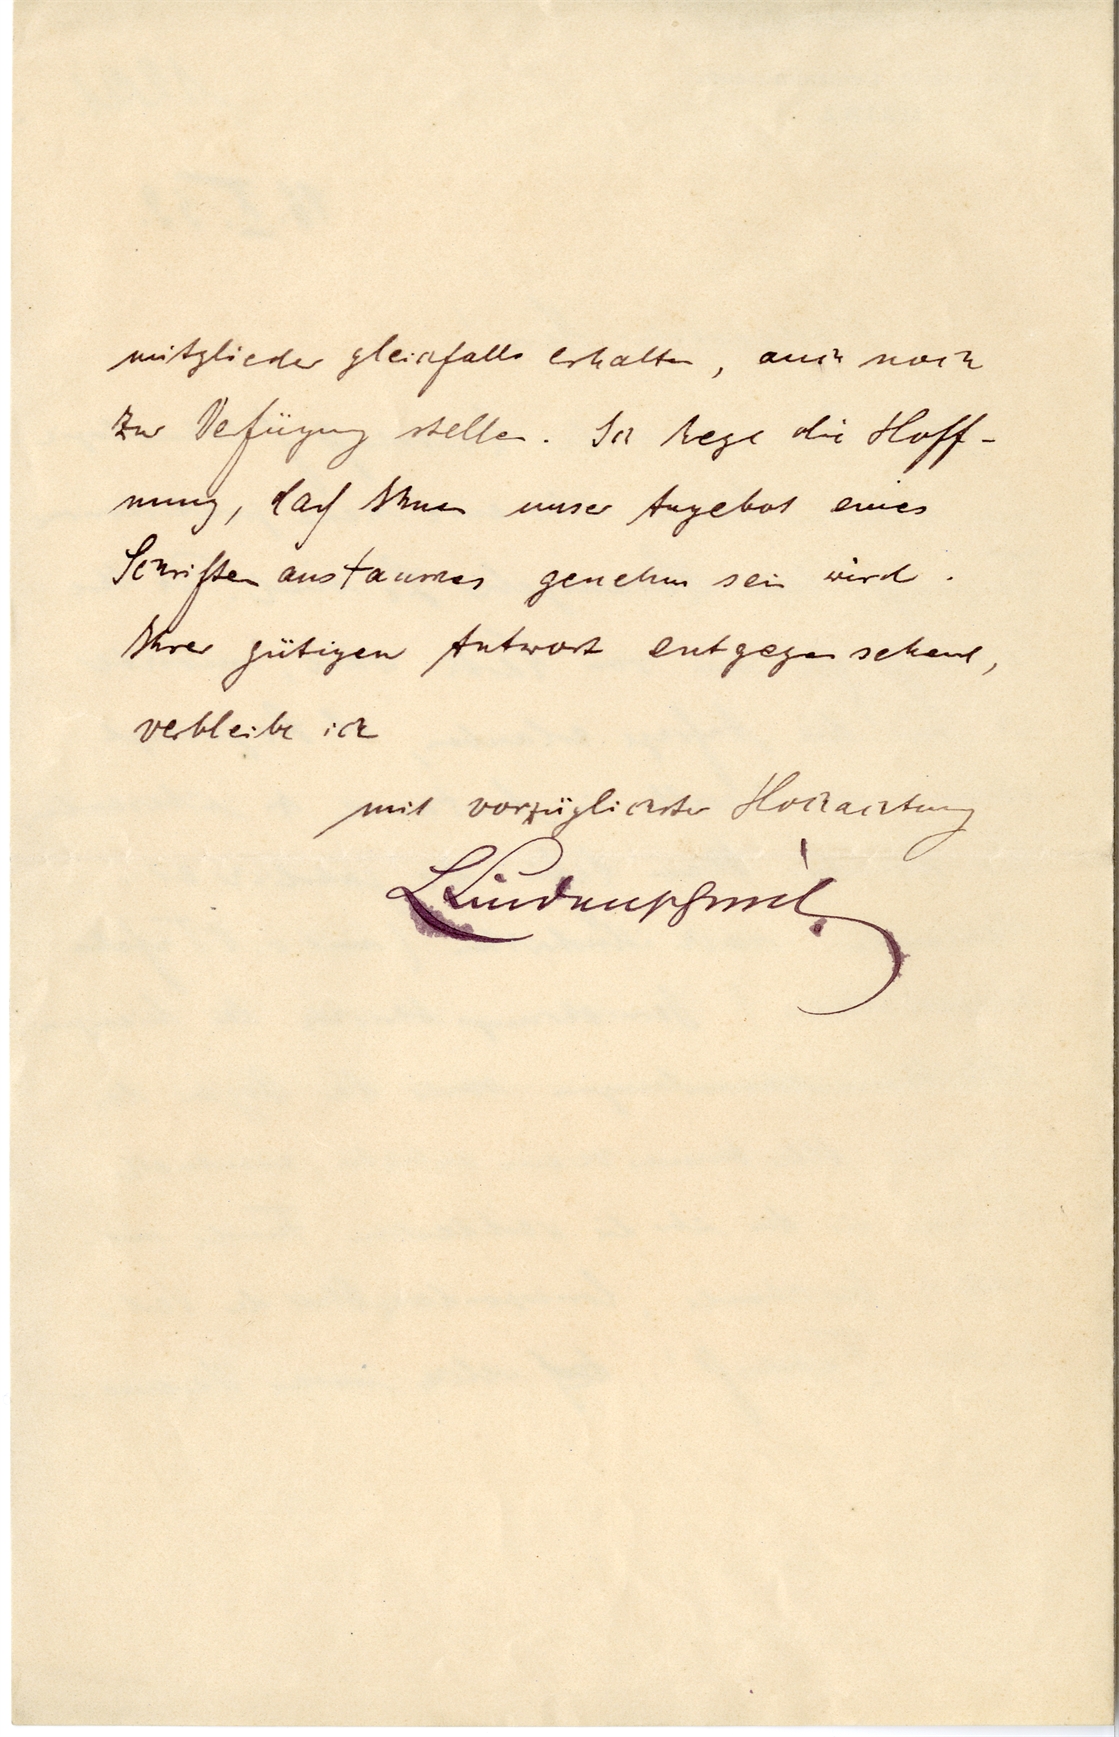 mitglieder gleichfalls erhalten, auch noch
zur Verfügung stellen. Ich hege die Hoff-
nung, daß Ihnen unser Angebot eines
Schriftenaustausches genehm sein wird.
Ihrer gütigen Antwort entgegensehend,
verbleibe ich
mit vorzüglichster Hochachtung
LLindenschmit